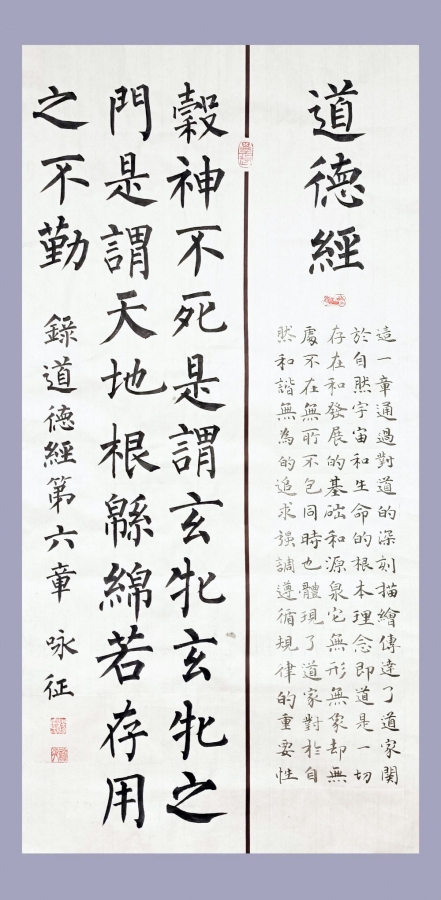 道德經
這一章通過對道的深刻描繪傳達了道家關
於自然宇宙和生命的根本理念即道是一切
存在和發展的基础和源泉它無形無象却無
處不在無所不包同時也體現了道家對於自
然和諧無為的追求强調遵循規律的重要性
榖神不死是謂玄牝玄牝之
門是謂天地根緜綿若存用
之不勤 錄道德經第六章 咏征